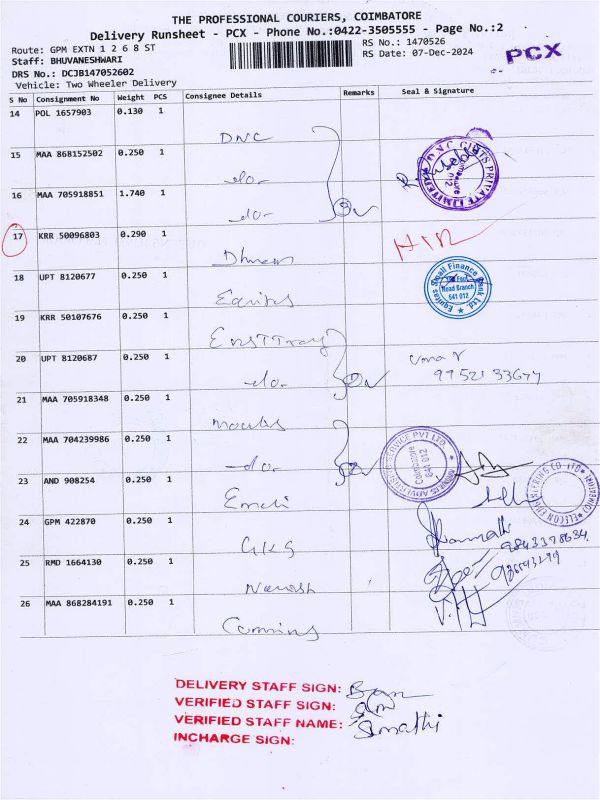 THE PROFESSIONAL COURIERS, COIMBATORE
Delivery Runsheet - PCX - Phone No.:0422-3505555 - Page No.:2
Route: GPM EXTN 1 2 6 8 ST
RS No.: 1470526
Staff: BHUVANESHWARI
RS Date: 07-Dec-2024
PCX
DRS No.: DCJB147052602
Vehicle: Two Wheeler Delivery
S No Consignment No Weight PCS Consignee Details Remarks Seal & Signature
14 POL 1657903 0.130 1 DNC
15 MAA 868152502 0.250 1 do-
16 MAA 705918851 1.740 1 do-
17 KRR 50096803 0.290 1
18 UPT 8120677 0.250 1 Equitas
19 KRR 50107676 0.250 1
20 UPT 8120687 0.250 1 do-
21 MAA 705918348 0.250 1
22 MAA 704239986 0.250 1 do-
23 AND 908254 0.250 1
24 GPM 422870 0.250 1 GKS
25 RMD 1664130 0.250 1
26 MAA 868284191 0.250 1
DNC GIFTS PRIVATE LIMITED
Equitas Small Finance Bank Ltd.
Road Branch
641 012
Uma V
9952133677
ADVERTISING SERVICE PVT LTD.
Coimbatore
641 012
ELECON ENGINEERING CO. LTD
DELIVERY STAFF SIGN:
VERIFIED STAFF SIGN:
VERIFIED STAFF NAME: Sumathi
INCHARGE SIGN: